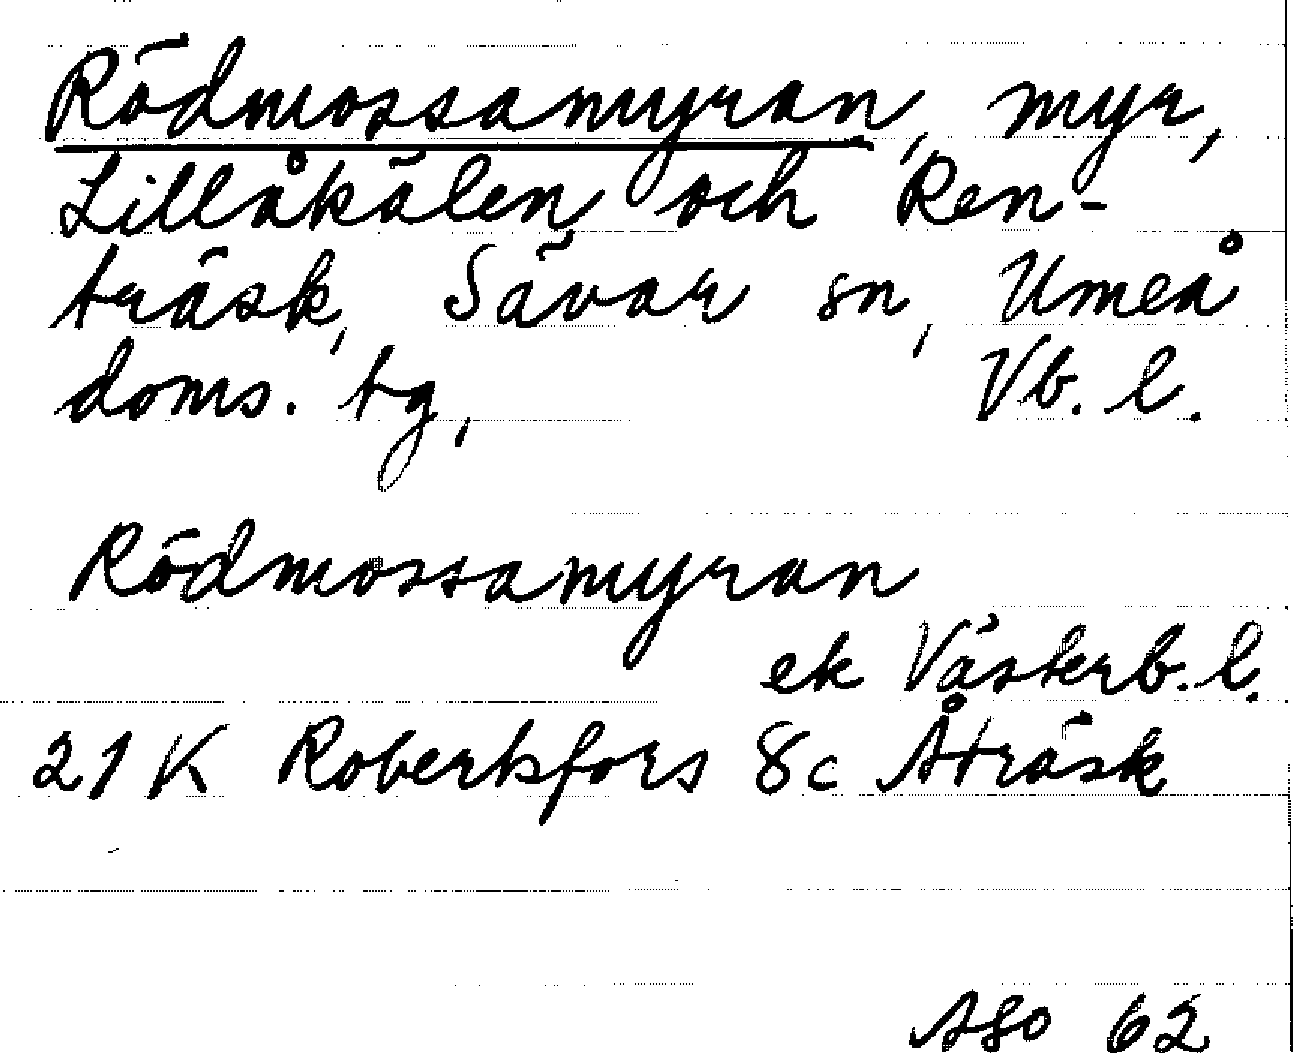 Rödmossamyran, myr,
Lillåkälen och Ren-
träsk, Sävar sn, Umeå
doms. tg, Vb. l.
Rödmossamyran
ek Västerb. l.
21 K Robertsfors 8c Åträsk
ASo 62